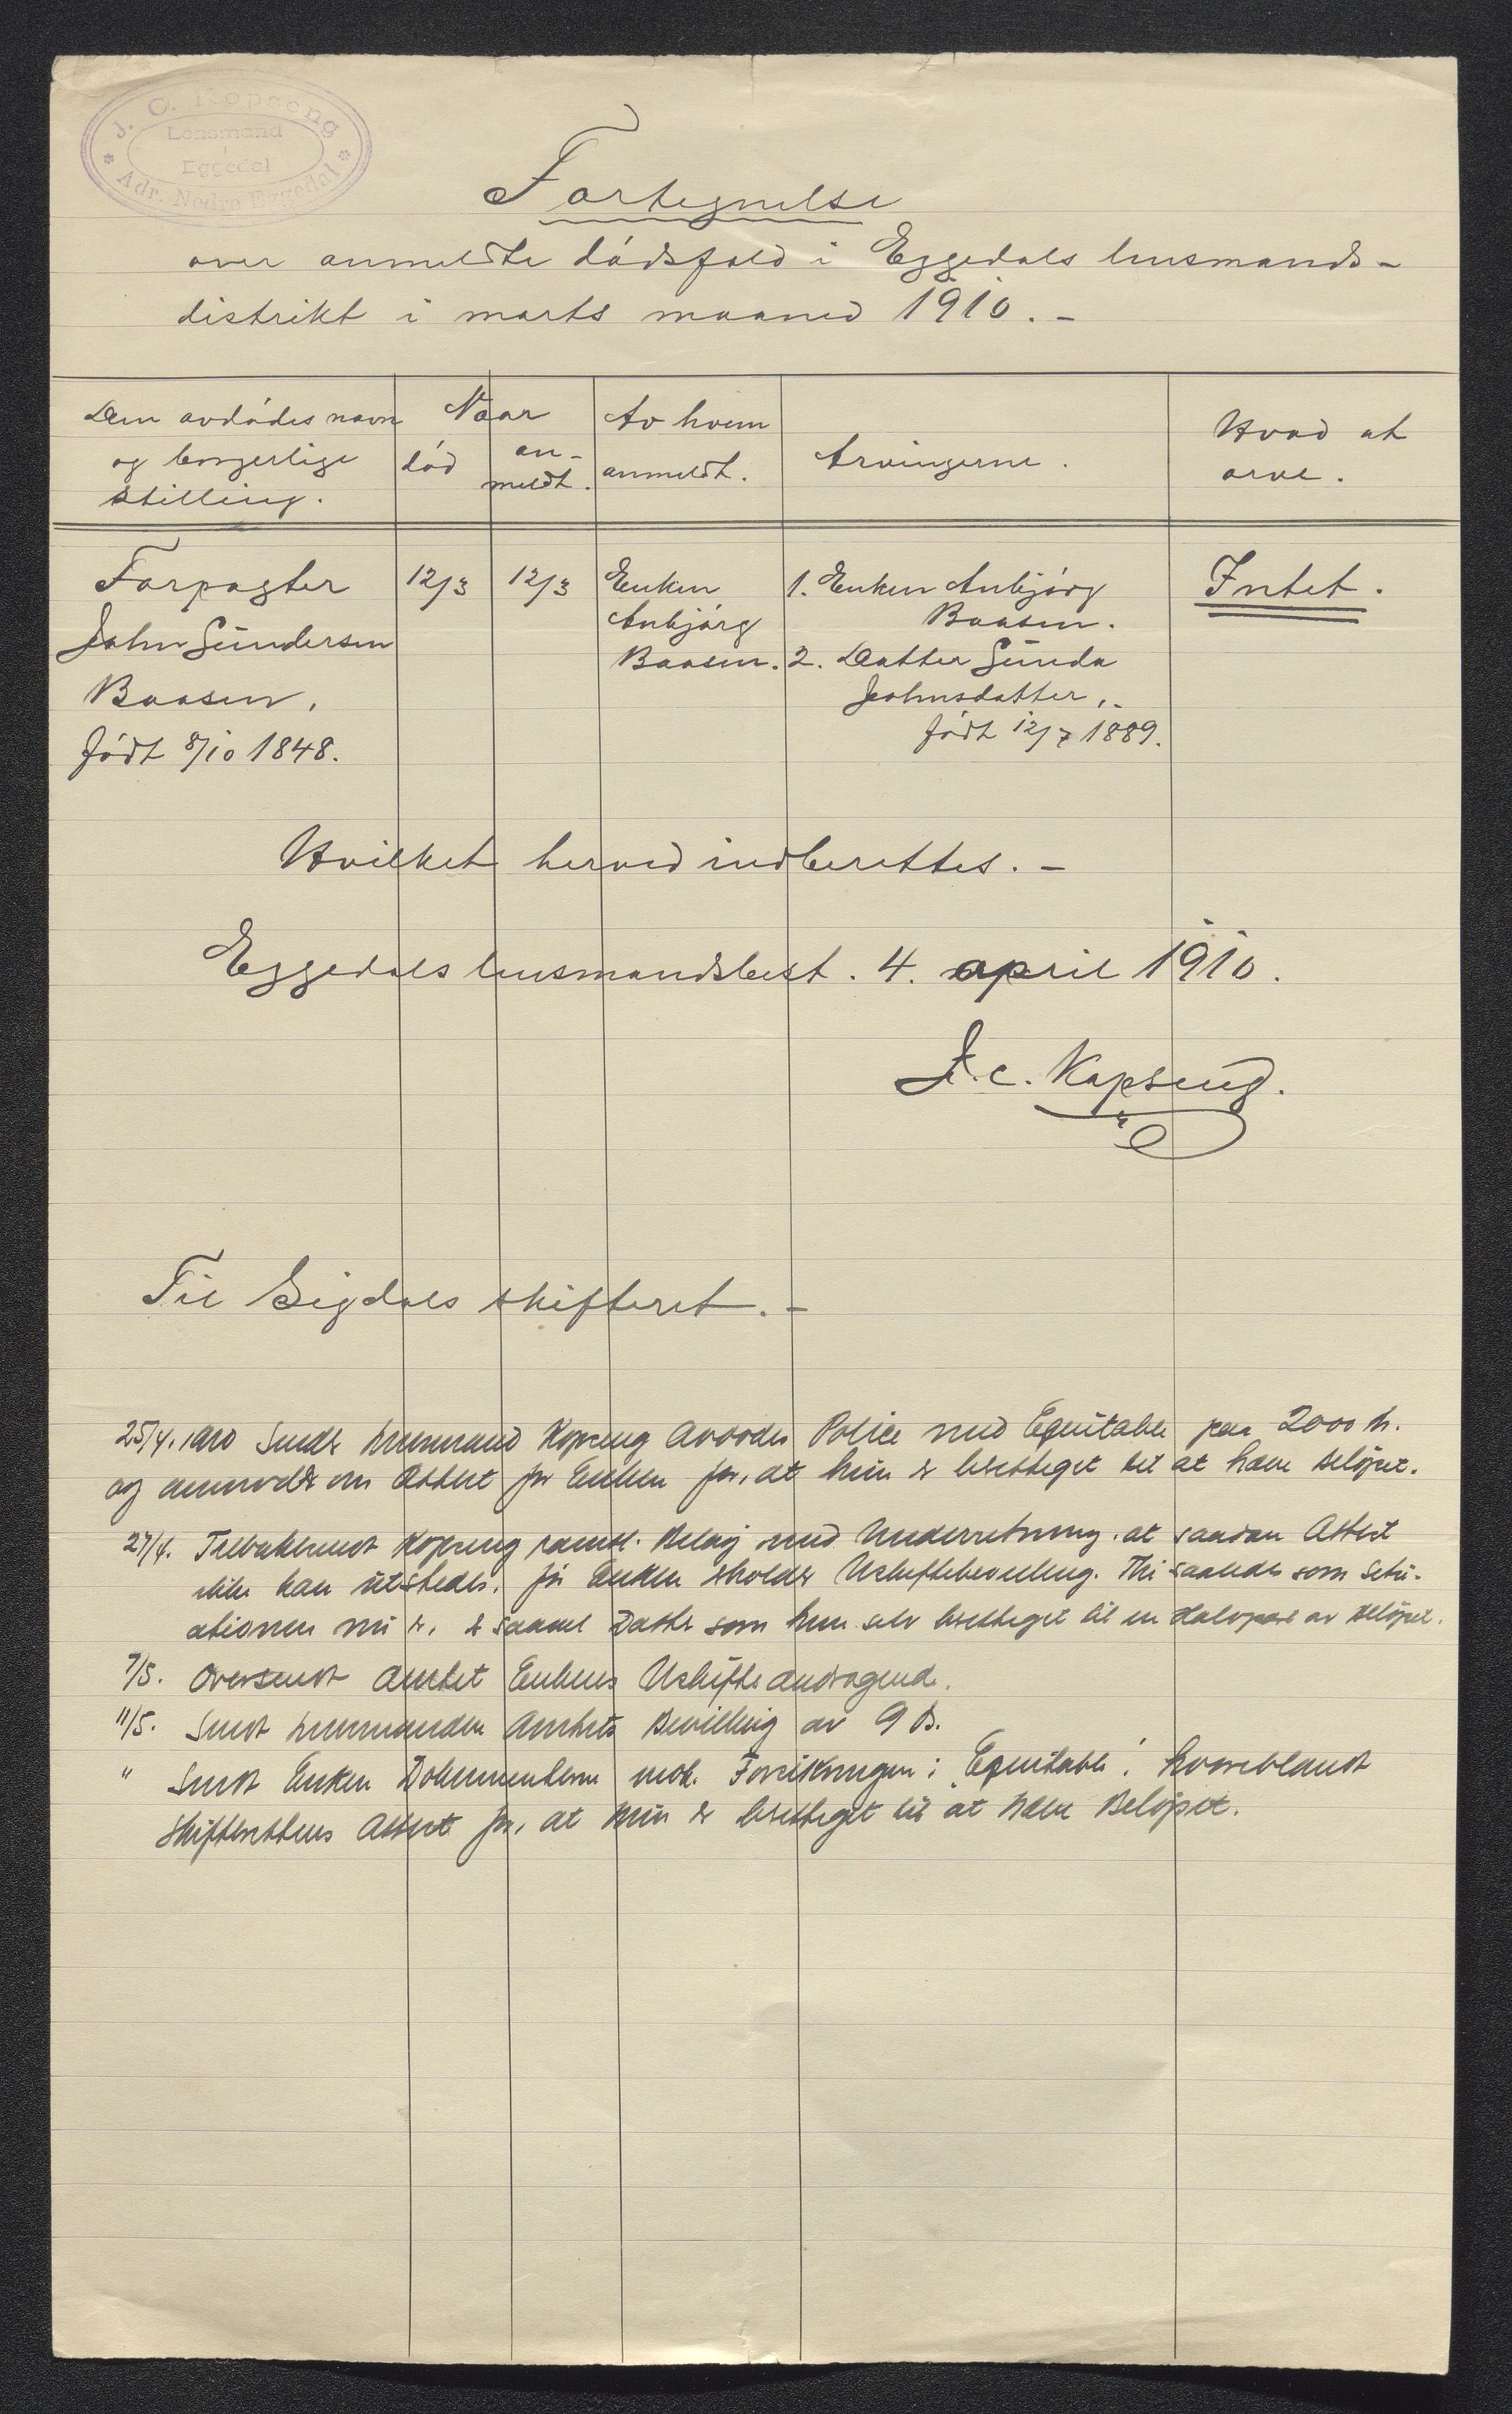 J. C. Kopseng
Lensmand
i
Eggedal
Adr. Nedre Eggedal
Fortegnelse
over anmeldte dødsfald i Eggedals lensmands-
distrikt i marts maaned 1910. -
Den avdødes navn
og borgerlige
stilling.
Naar
død
an-
meldt.
Av hvem
anmeldt.
Arvingerne.
Hvad at
arve.
Forpagter
John Gundersen
Baasen,
født 8/10 1848.
12/3
12/3
Enken
Anbjørg
Baasen.
1. Enken Anbjørg
Baasen.
2. Datter Gunda
Johnsdatter,
født 12/7 1889.
Intet.
Hvilket herved indberettes. -
Eggedals lensmandsbest. 4. april 1910.
J. C. Kopseng.
Til Sigdals skifteret. -
25/4. 1910 Sender Lensmand Kopseng Avdødes Police med Equitable paa 2000 Kr.
og anmoder om Attest for Enken for, at hun er berettiget til at hæve Beløpet.
27/4. Tilbakesendt Kopseng samtl. Bilag med Underretning, at saadan Attest
ikke kan utstedes, før Enken erholder Uskiftebevilling. Thi saaledes som Situ-
ationen nu er, er saavel Datter som hun selv berettiget til en Halvpart av Beløpet.
7/5. Oversendt Amtet Enkens Uskifteandragende.
11/5. Sendt Lensmanden Amtets Bevilling av 9 ds.
" Sendt Enken Dokumenterne vedk. Forsikringen i "Equitable", hvoriblandt
Skifterettens Attest for, at hun er berettiget til at hæve Beløpet.